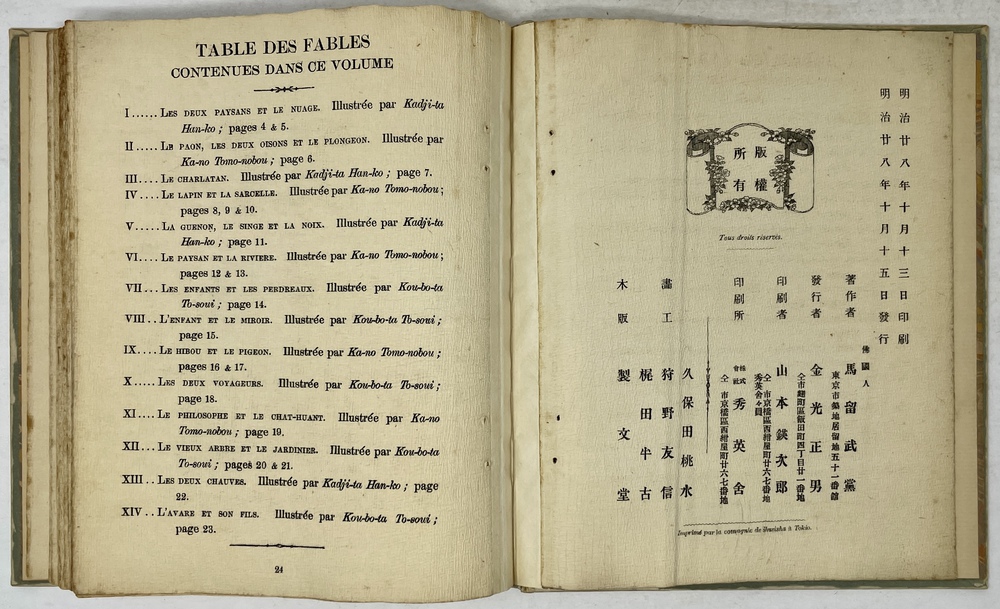 TABLE DES FABLES
CONTENUES DANS CE VOLUME
I...... LES DEUX PAYSANS ET LE NUAGE. Illustrée par Kadji-ta
Han-ko; pages 4 & 5.
II ..... LE PAON, LES DEUX OISONS ET LE PLONGEON. Illustrée par
Ka-no Tomo-nobou; page 6.
III.... LE CHARLATAN. Illustrée par Kadji-ta Han-ko; page 7.
IV.... LE LAPIN ET LA SARCELLE. Illustrée par Ka-no Tomo-nobou;
pages 8, 9 & 10.
V..... LA GUENON, LE SINGE ET LA NOIX. Illustrée par Kadji-ta
Han-ko; page 11.
VI.... LE PAYSAN ET LA RIVIERE. Illustrée par Ka-no Tomo-nobou;
pages 12 & 13.
VII... LES ENFANTS ET LES PERDREAUX. Illustrée par Kou-bo-ta
To-soui; page 14.
VIII.. L'ENFANT ET LE MIROIR. Illustrée par Kou-bo-ta To-soui;
page 15.
IX.... LE HIBOU ET LE PIGEON. Illustrée par Ka-no Tomo-nobou;
pages 16 & 17.
X..... LES DEUX VOYAGEURS. Illustrée par Kou-bo-ta To-soui;
page 18.
XI.... LE PHILOSOPHE ET LE CHAT-HUANT. Illustrée par Ka-no
Tomo-nobou; page 19.
XII... LE VIEUX ARBRE ET LE JARDINIER. Illustrée par Kou-bo-ta
To-soui; pages 20 & 21.
XIII.. LES DEUX CHAUVES. Illustrée par Kadji-ta Han-ko; page
22.
XIV.. L'AVARE ET SON FILS. Illustrée par Kou-bo-ta To-soui;
page 23.
24
明治廿八年十月十三日印刷
明治廿八年十月十五日發行
版權
所有
Tous droits réservés.
佛國人
著作者 馬留武黨
東京市築地居留地五十一番館
發行者 金光正男
仝市麹町區飯田町四丁目廿一番地
印刷者 山本鍈次郎
仝市京橋區西紺屋町廿六七番地
秀英舍々員
印刷所 株式會社 秀英舍
仝市京橋區西紺屋町廿六七番地
畵工 久保田桃水
狩野友信
梶田半古
木版 製文堂
Imprimé par la compagnie de Shueisha à Tokio.